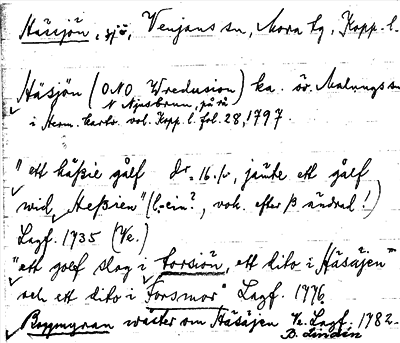 Häsjön, sjö, Venjans sn, Mora tg, Kopp. l.
Häsjön (ONO Wredusion) ka. öv. Malungs sn
N Njusbrun, på rå
i Herm. kartv. vol. Kopp. l. fol. 28, 1797.
"ett håßie gålf dr. 16./., jämte ett gålf
wid Heßien" (l. -ein?, vok. efter ß ändrad!)
Lagf. 1735 (Ve.)
"ett golf slog i Forsiön, ett dito i Häsäjen"
och ett dito i Forsmor" Lagf. 1776
Roymyran wäster om Häsäjen Ve. Lagf. 1782.
B. Lindén